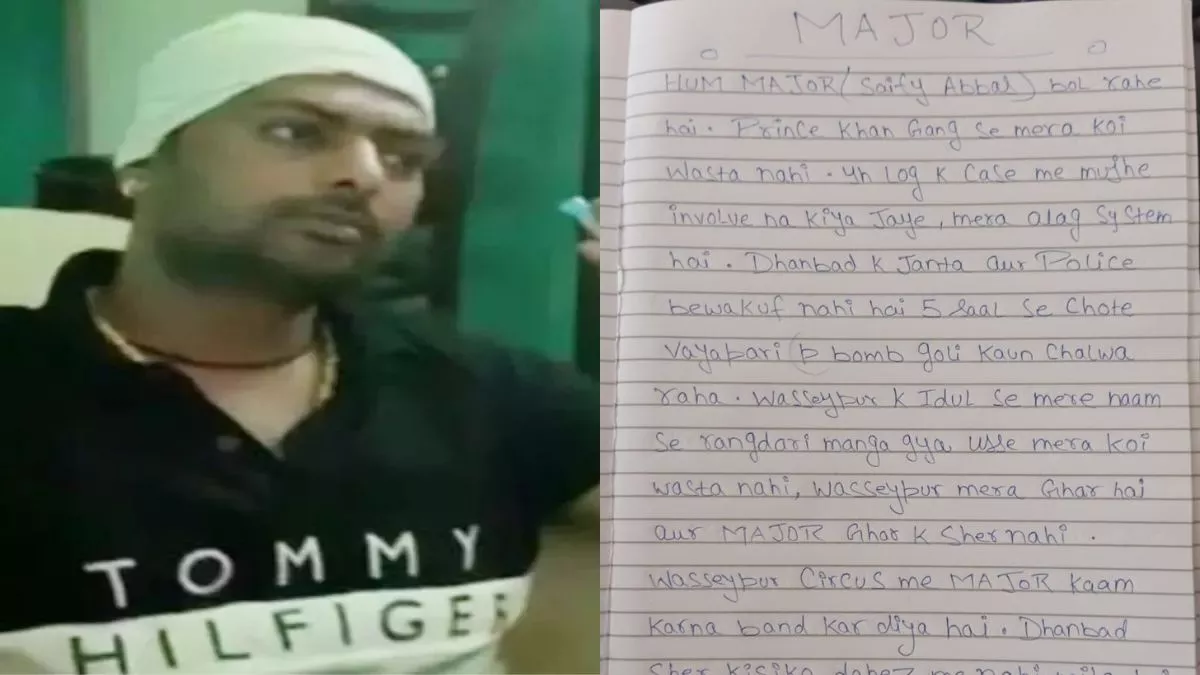 TOMMY
HILFIGER
MAJOR
HUM MAJOR (Saify Abbas) bol rahe
hai. Prince Khan Gang se mera Koi
Wasta nahi. yh log K Case me mujhe
involve na Kiya Jaye, mera alag System
hai. Dhanbad K Janta aur Police
bewakuf nahi hai 5 Saal Se Chote
Vayapari p bomb goli Kaun Chalwa
raha. Wasseypur K Idul Se mere naam
Se rangdari manga gya usse mera Koi
wasta nahi, Wasseypur mera Ghar hai
aur MAJOR Ghar K Sher nahi.
Wasseypur Circus me MAJOR Kaam
Karna band Kar diya hai. Dhanbad
Sher Kisiko